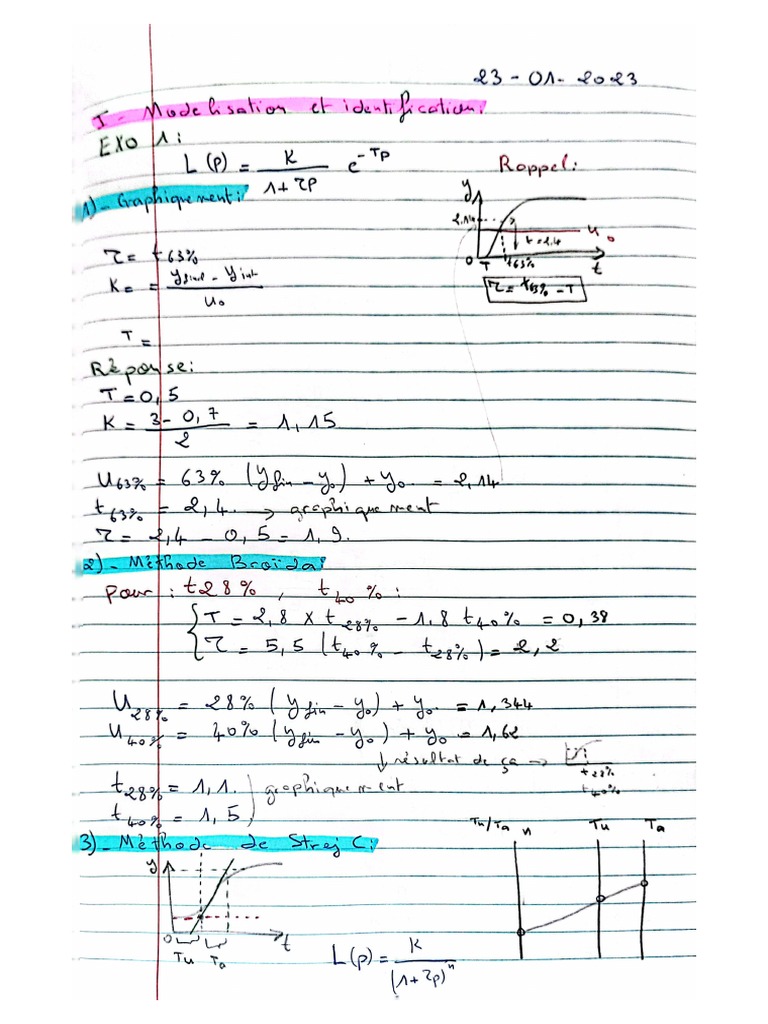 23-01-2023
I- Modelisation et identification:
EXO 1:
L(p) = K / (1+τp) e^-Tp
Rappel:
1)- Graphiquement:
y
2.14
u₀
t=2.4
0 T t63% t
τ = t63% - T
τ = t63%
K = = (yfinal - yinit) / u₀
T =
Réponse:
T = 0,5
K = (3 - 0,7) / 2 = 1,15
U63% = 63% (yfin - y₀) + y₀ = 2,14
t63% = 2,4. → graphiquement
τ = 2,4 - 0,5 = 1,9.
2)- Méthode Broïda:
pour : t28% , t40% :
T = 2,8 x t28% - 1,8 t40% = 0,38
τ = 5,5 (t40% - t28%) = 2,2
U28% = 28% (yfin - y₀) + y₀ = 1,344
U40% = 40% (yfin - y₀) + y₀ = 1,62
↓ résultat de ça →
t28%
t40%
t28% = 1,1.
t40% = 1,5
) graphiquement
3)- Méthode de Strej C:
y
0 t
Tu Ta
Tu/Ta n Tu Ta
L(p) = K / (1+τp)^n